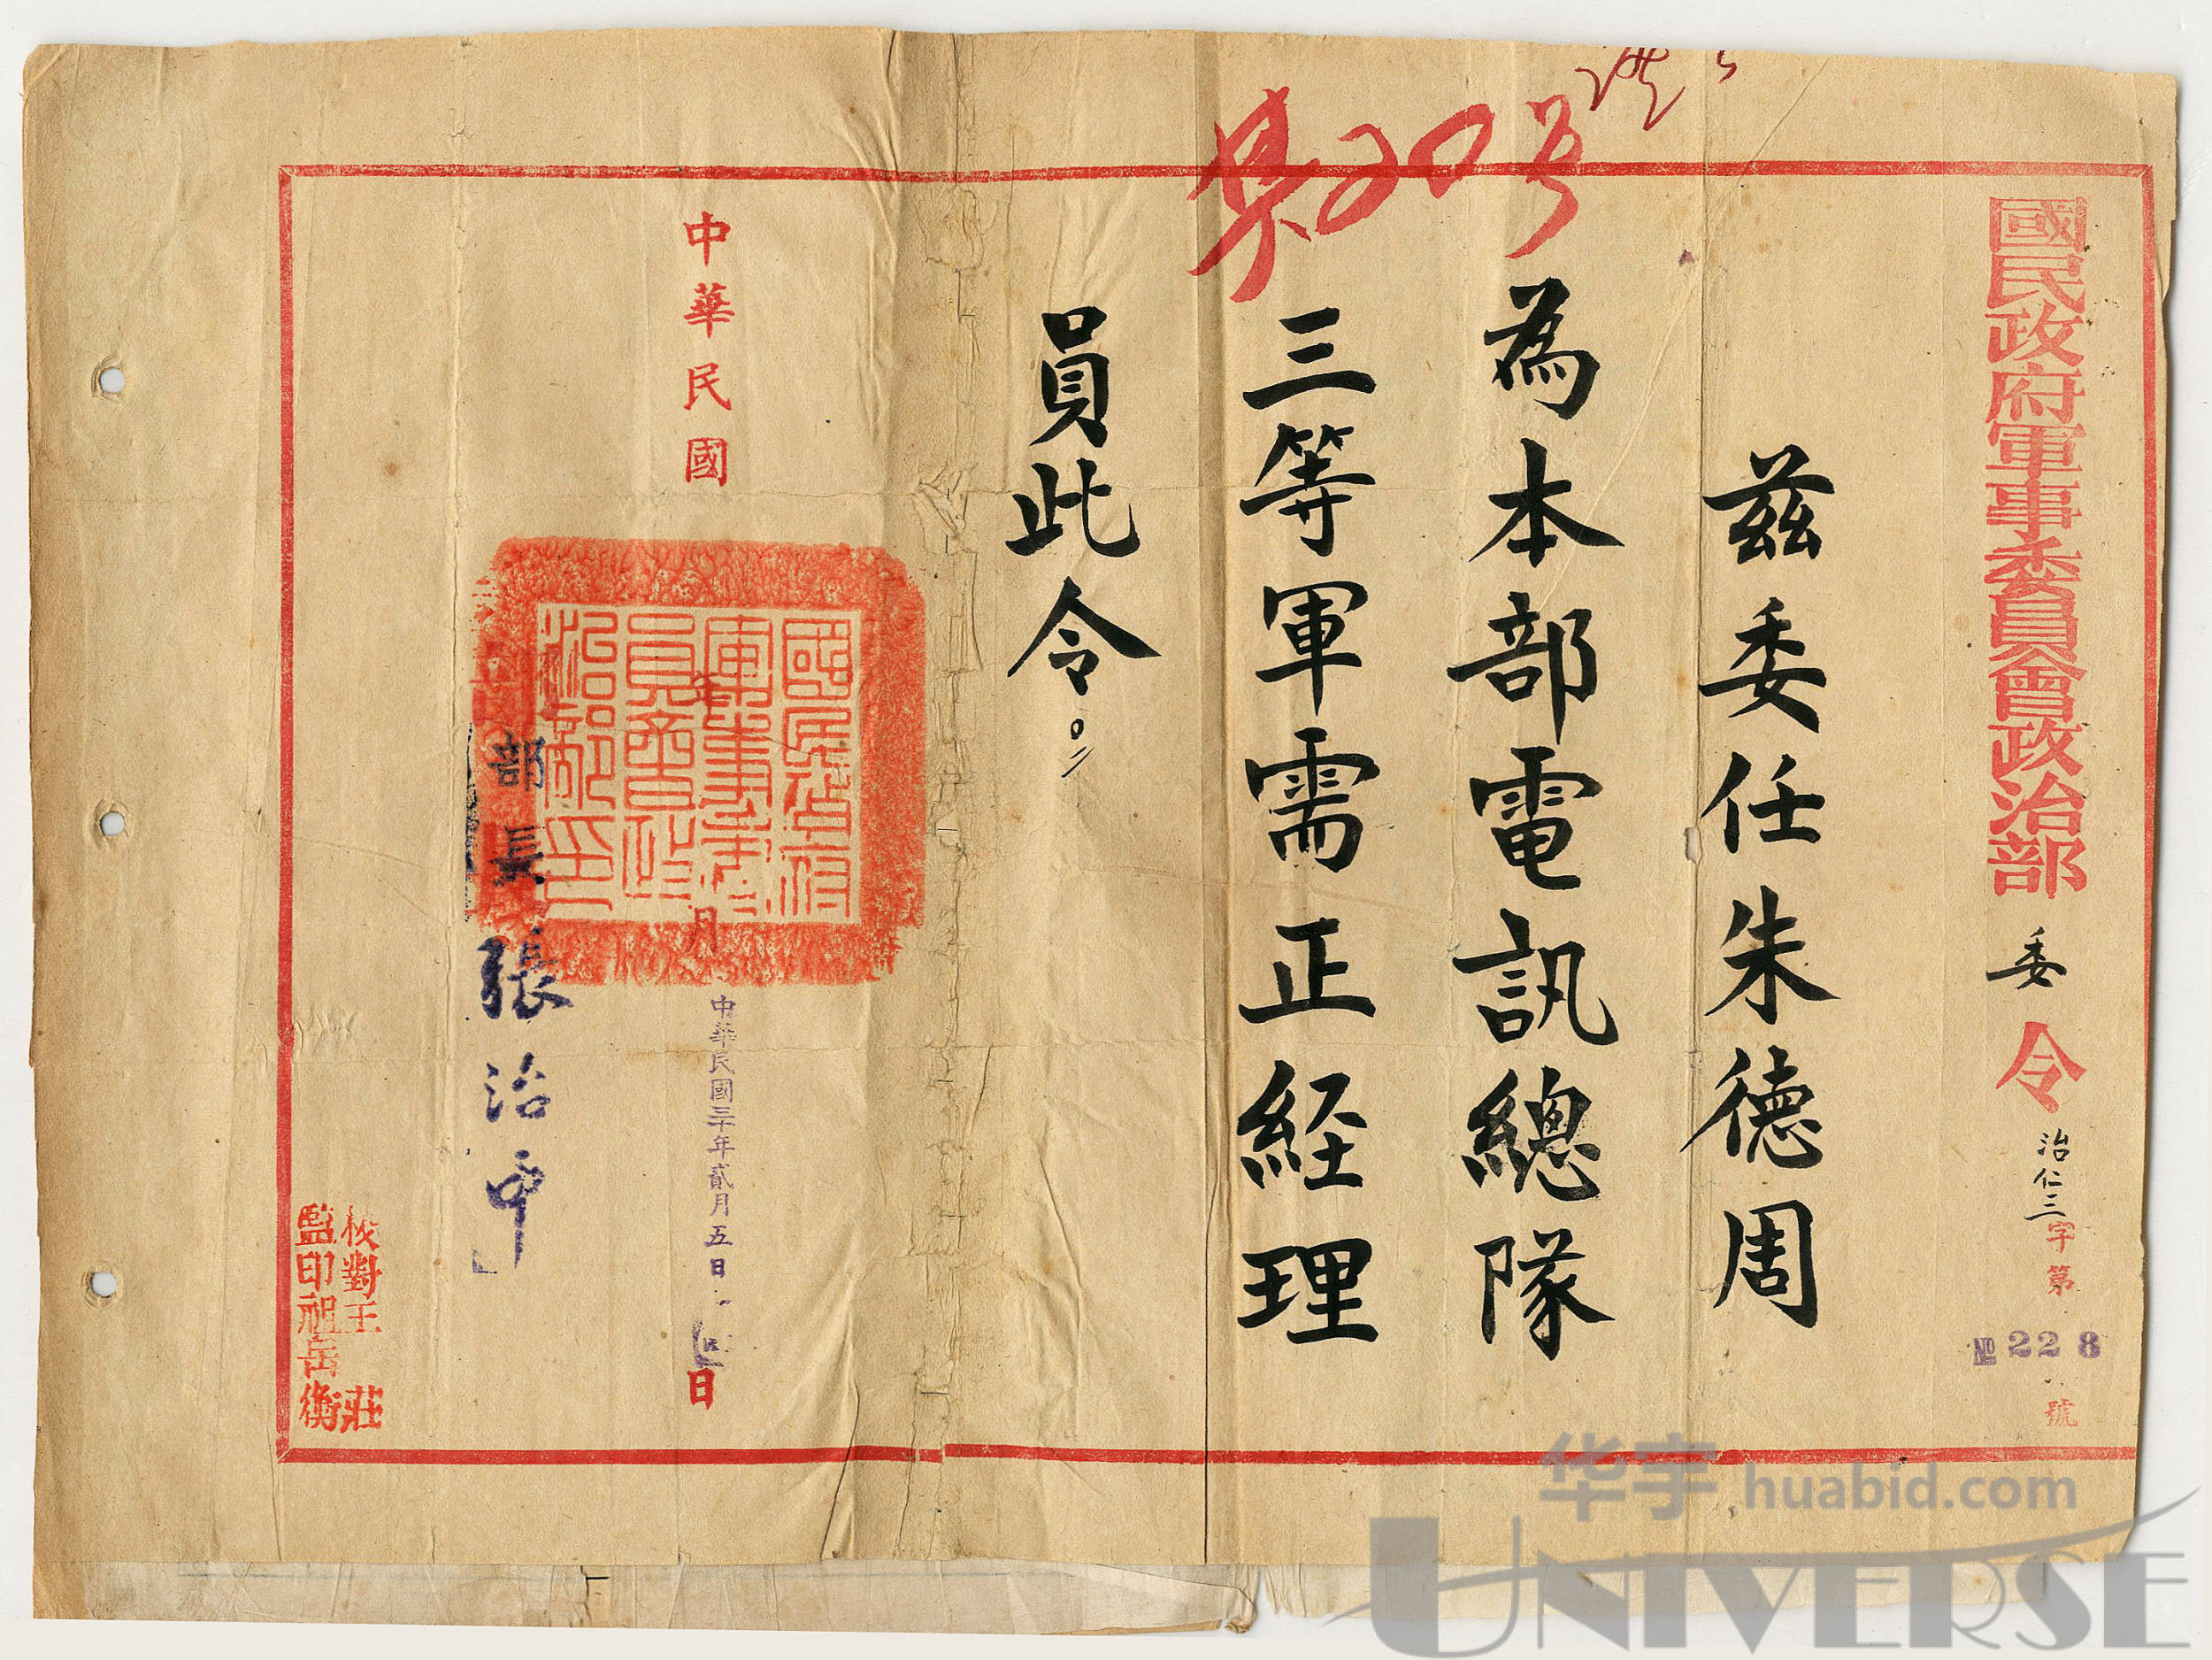 國民政府軍事委員會政治部委令
治仁二字第
№228
號
茲委任朱德周
為本部電訊總隊
三等軍需正経理
員此令。
20号
中華民國
年
月
日
中華民國三十年貳月五日
國民政府
軍事委
員會政
治部印
部長張治中
校對王 莊
監印祖岳衡
华宇 huabid.com
UNIVERSE